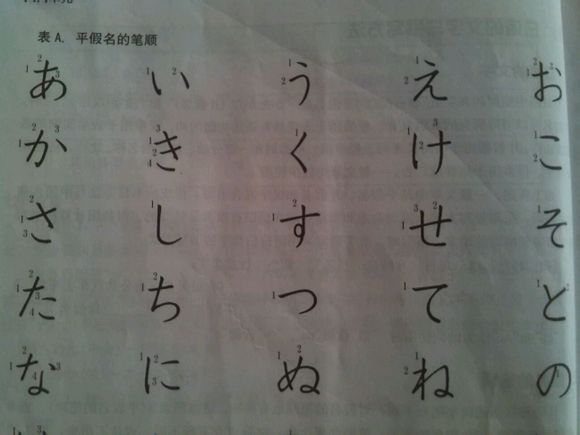 表 A. 平假名的笔顺
あ い う え お
か き く け こ
さ し す せ そ
た ち つ て と
な に ぬ ね の